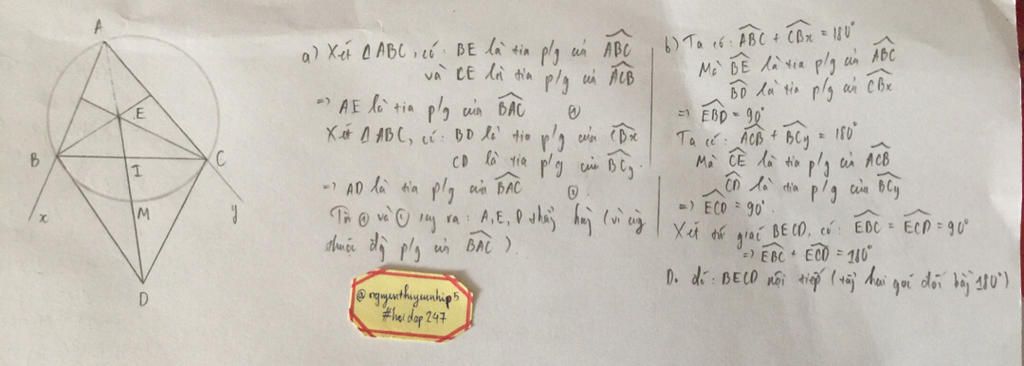 A
E
B
C
I
x
M
y
D
a) Xét ΔABC, có: BE là tia p/g của ABC
và CE là tia p/g của ACB
=> AE là tia p/g của BAC
Xét ΔABC, có: BD là tia p/g của CBx
CD là tia p/g của BCy
=> AD là tia p/g của BAC
Từ và suy ra: A, E, D thẳng hàng (vì cùng
thuộc đg p/g của BAC).
@nguyenthuyennhip5
#hoidap247
b) Ta có: ABC + CBx = 180°
Mà BE là tia p/g của ABC
BD là tia p/g của CBx
=> EBD = 90°
Ta có: ACB + BCy = 180°
Mà CE là tia p/g của ACB
CD là tia p/g của BCy
=> ECD = 90°
Xét tứ giác BECD, có: EBC = ECD = 90°
=> EBC + ECD = 180°
Do đó: BECD nội tiếp (tổng hai góc đối bằng 180°)